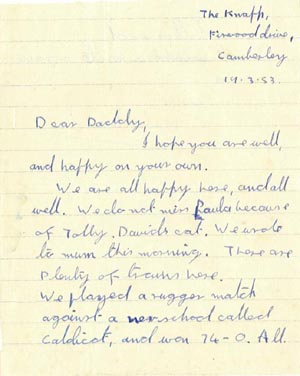 The Knapp,
Firwood drive,
Camberley
19.3.53.
Dear Daddy,
I hope you are well,
and happy on your own.
We are all happy here, and all
well. We do not miss Paula because
of Tolly, Davids cat. We wrote
to mum this morning. There are
plenty of trains here.
We played a rugger match
against a new school called
Caldicot, and won 74-0. All